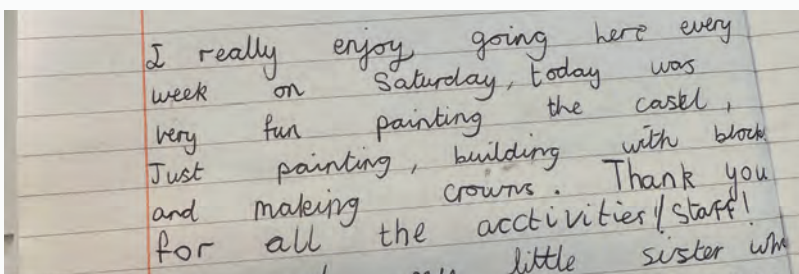 I really enjoy going here every
week on Saturday, today was
very fun painting the casel,
Just painting, building with block
and making crowns. Thank you
for all the acctivities/staff!
little sister